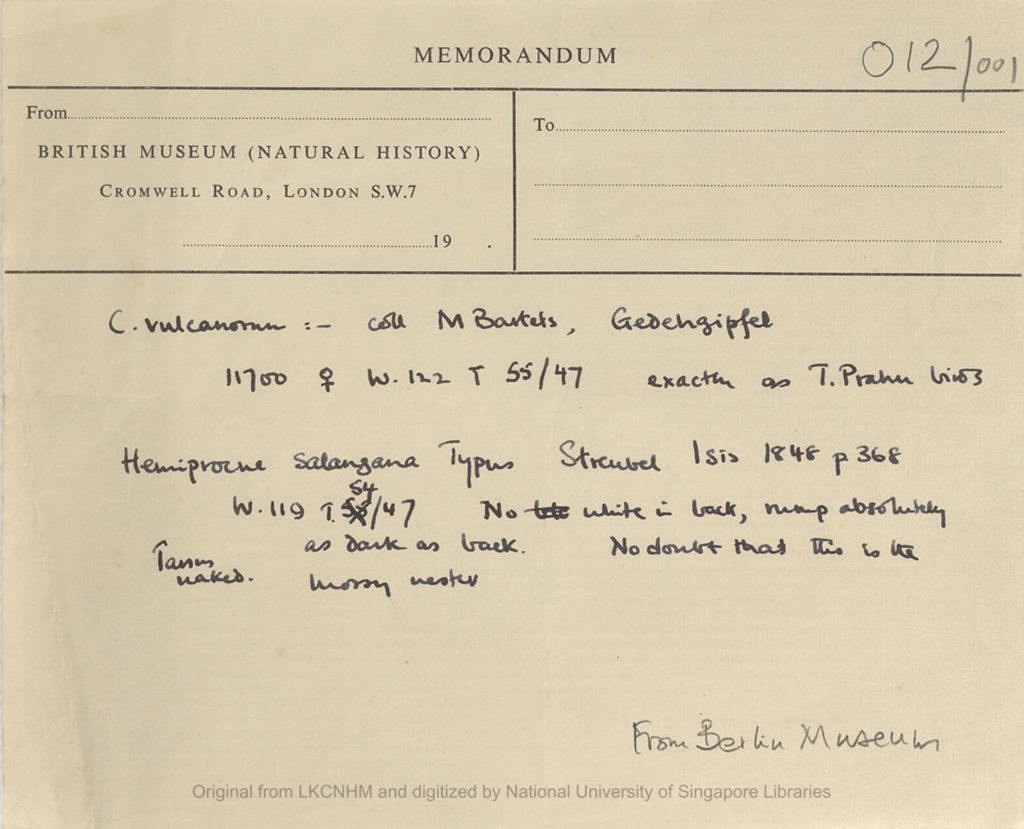 MEMORANDUM
012/001
From
BRITISH MUSEUM (NATURAL HISTORY)
CROMWELL ROAD, LONDON S.W.7
19 .
To
C. vulcanorum :- coll M Bartels, Gedehgipfel
11700 ♀ W. 122 T 55/47 exactly as T. Prahu birds
Hemiprocne salangana Typus Streubel Isis 1848 p 368
54
W. 119 T. 55/47 No white in back, rump absolutely
as dark as back. No doubt that this is the
Tarsus
naked. mossy nester
From Berlin Museum
Original from LKCNHM and digitized by National University of Singapore Libraries